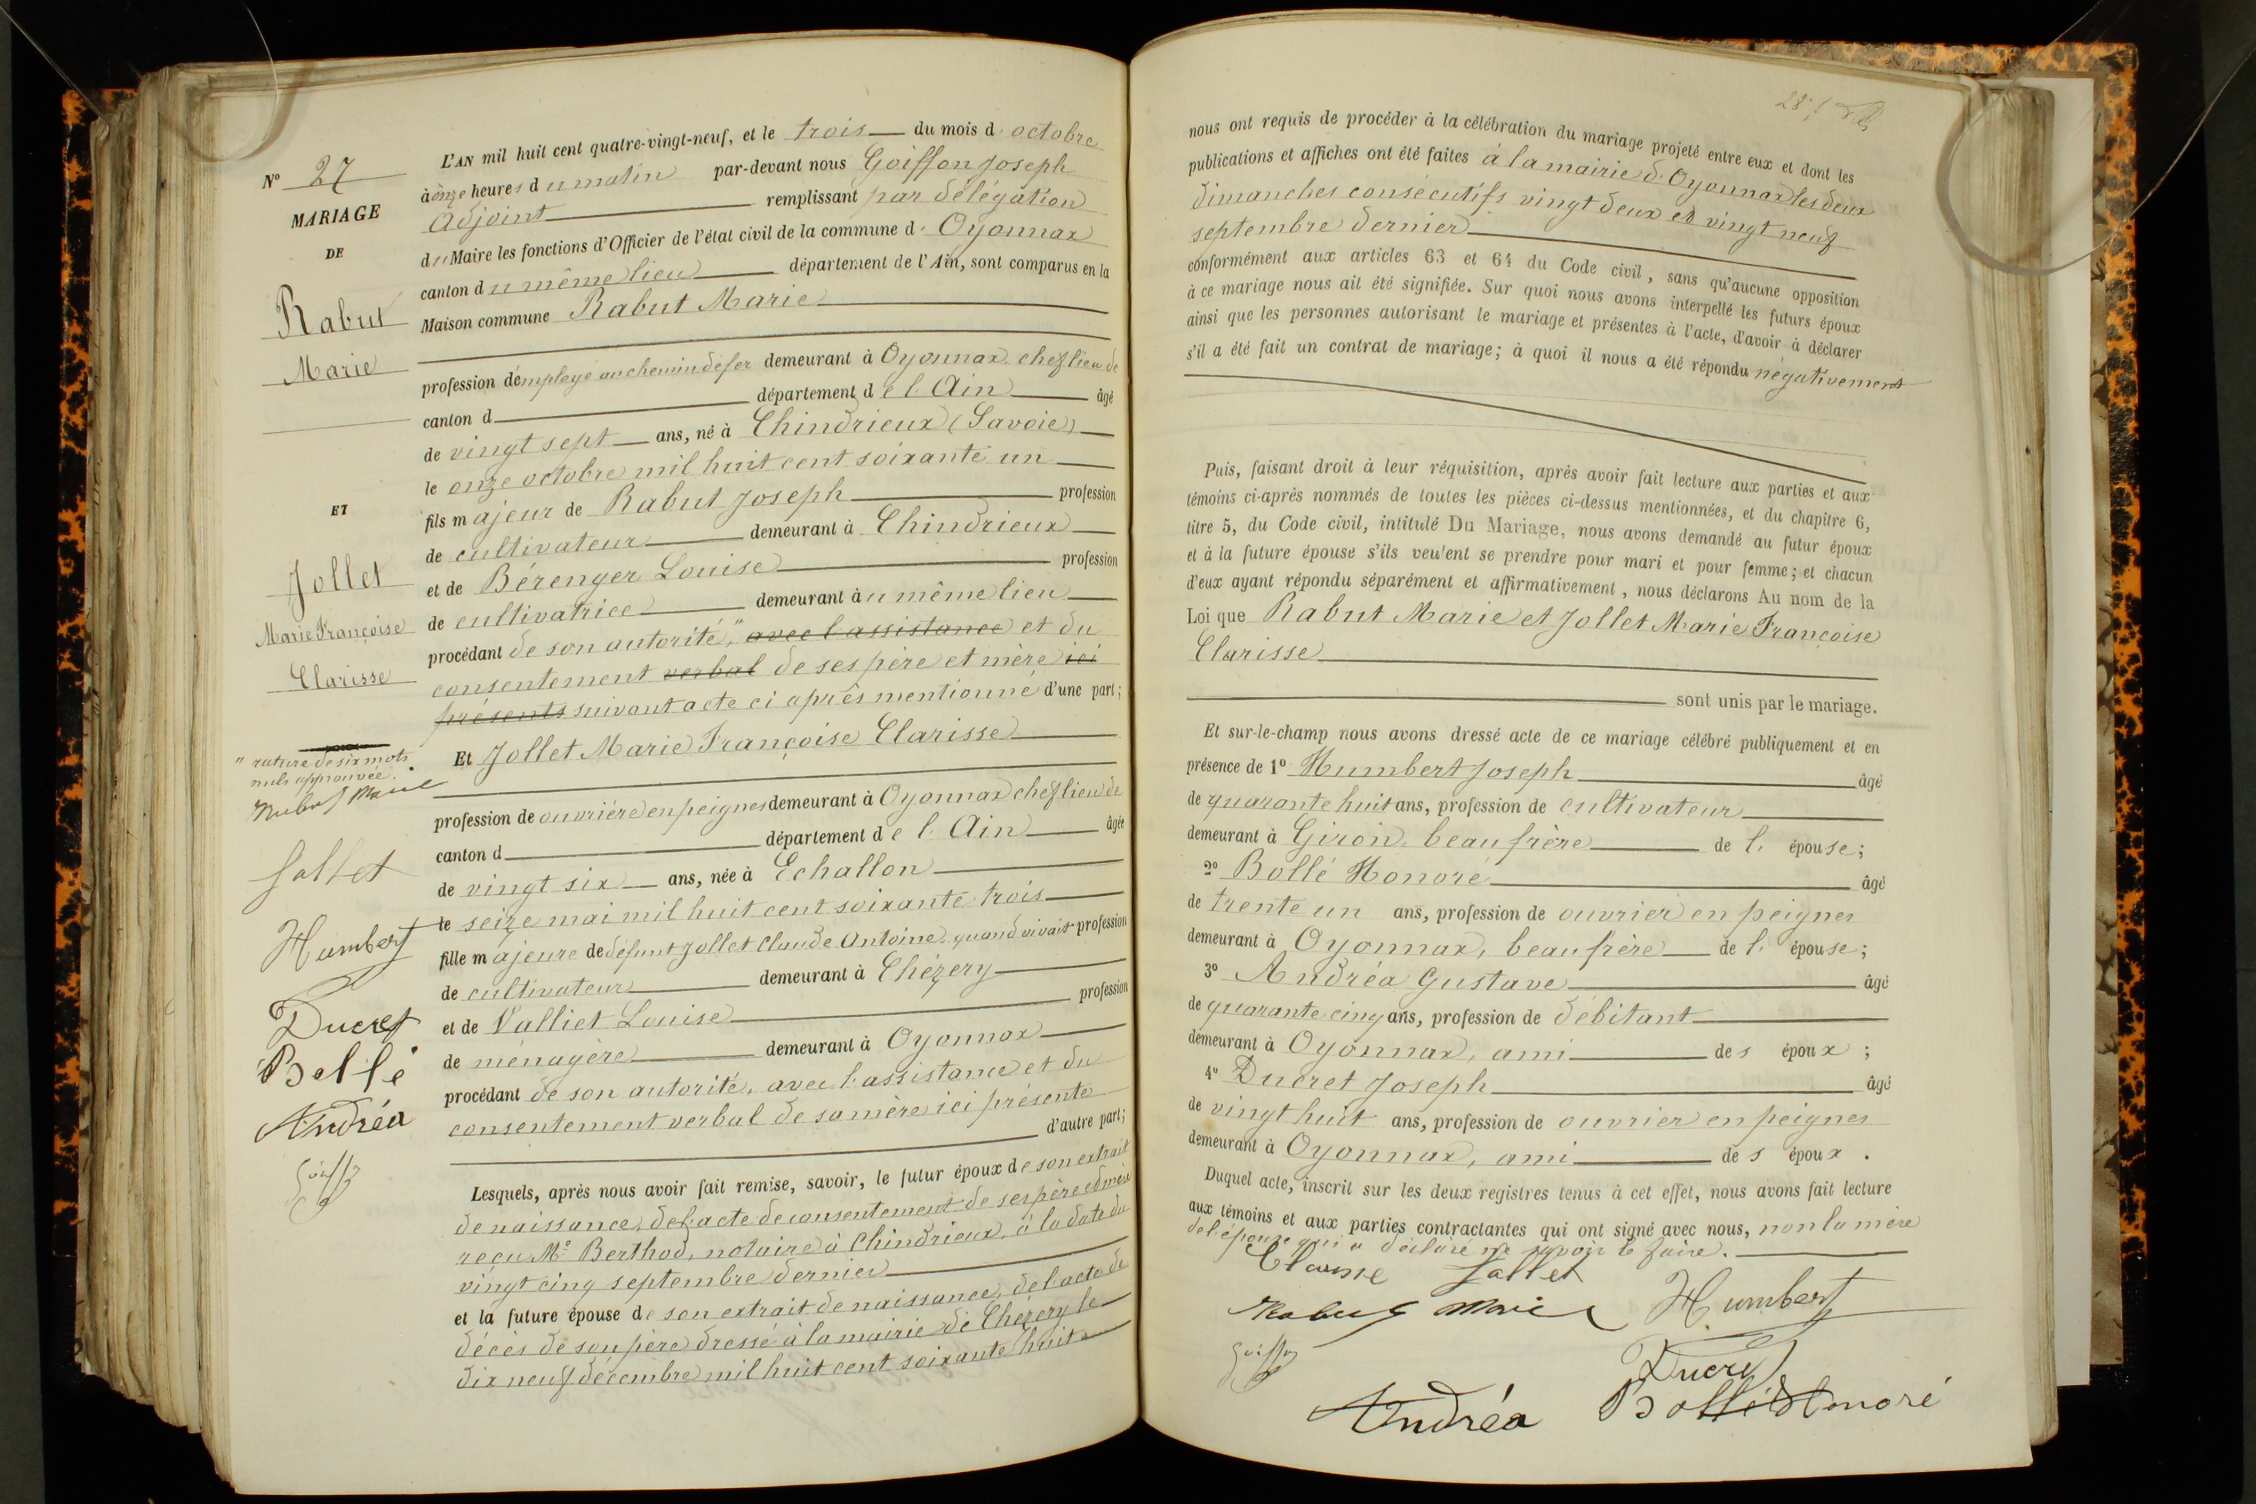 N° 27
MARIAGE
DE
Rabut
Marie
ET
Jollet
Marie Françoise
Clarisse
" rature de six mots
nuls approuvée.
Rabut Marie
Jollet
Humbert
Ducret
Bollé
Andréa
L'AN mil huit cent quatre-vingt-neuf, et le trois du mois d'octobre
à onze heures du matin par-devant nous Goiffon Joseph
Adjoint remplissant par délégation
du Maire les fonctions d'Officier de l'état civil de la commune d'Oyonnax
canton du même lieu département de l'Ain, sont comparus en la
Maison commune Rabut Marie
profession d'employé au chemin de fer demeurant à Oyonnax chef lieu de
canton d département de l'Ain âgé
de vingt sept ans, né à Chindrieux (Savoie)
le onze octobre mil huit cent soixante un
fils majeur de Rabut Joseph profession
de cultivateur demeurant à Chindrieux
et de Bérenger Louise profession
de cultivatrice demeurant au même lieu
procédant de son autorité," avec l'assistance et du
consentement verbal de ses père et mère ici
présents suivant acte ci après mentionné d'une part;
Et Jollet Marie Françoise Clarisse
profession de ouvrière en peignes demeurant à Oyonnax chef lieu de
canton d département de l'Ain âgée
de vingt six ans, née à Echallon
le seize mai mil huit cent soixante trois
fille majeure de défunt Jollet Claude Antoine quand vivait profession
de cultivateur demeurant à Chézery
et de Valliet Louise profession
de ménagère demeurant à Oyonnax
procédant de son autorité, avec l'assistance et du
consentement verbal de sa mère ici présente
d'autre part;
Lesquels, après nous avoir fait remise, savoir, le futur époux de son extrait
de naissance, de l'acte de consentement de ses père et mère
reçu Me Berthod, notaire à Chindrieux, à la date du
vingt cinq septembre dernier
et la future épouse de son extrait de naissance, de l'acte de
décès de son père dressé à la mairie de Chézery le
dix neuf décembre mil huit cent soixante huit
nous ont requis de procéder à la célébration du mariage projeté entre eux et dont les
publications et affiches ont été faites à la mairie d'Oyonnax les deux
dimanches consécutifs vingt deux et vingt neuf
septembre dernier
conformément aux articles 63 et 64 du Code civil, sans qu'aucune opposition
à ce mariage nous ait été signifiée. Sur quoi nous avons interpellé les futurs époux
ainsi que les personnes autorisant le mariage et présentes à l'acte, d'avoir à déclarer
s'il a été fait un contrat de mariage; à quoi il nous a été répondu négativement
Puis, faisant droit à leur réquisition, après avoir fait lecture aux parties et aux
témoins ci-après nommés de toutes les pièces ci-dessus mentionnées, et du chapitre 6,
titre 5, du Code civil, intitulé Du Mariage, nous avons demandé au futur époux
et à la future épouse s'ils veulent se prendre pour mari et pour femme; et chacun
d'eux ayant répondu séparément et affirmativement, nous déclarons Au nom de la
Loi que Rabut Marie et Jollet Marie Françoise
Clarisse
sont unis par le mariage.
Et sur-le-champ nous avons dressé acte de ce mariage célébré publiquement et en
présence de 1° Humbert Joseph âgé
de quarante huit ans, profession de cultivateur
demeurant à Giron, beau frère de l'épouse;
2° Bollé Honoré âgé
de trente un ans, profession de ouvrier en peignes
demeurant à Oyonnax, beau frère de l'épouse;
3° Andréa Gustave âgé
de quarante cinq ans, profession de débitant
demeurant à Oyonnax, ami des époux;
4° Ducret Joseph âgé
de vingt huit ans, profession de ouvrier en peignes
demeurant à Oyonnax, ami des époux.
Duquel acte, inscrit sur les deux registres tenus à cet effet, nous avons fait lecture
aux témoins et aux parties contractantes qui ont signé avec nous, non la mère
de l'épouse qui a déclaré ne savoir le faire.
Clarisse Jollet
Rabut Marie Humbert
Ducret
Andréa Bollé Honoré